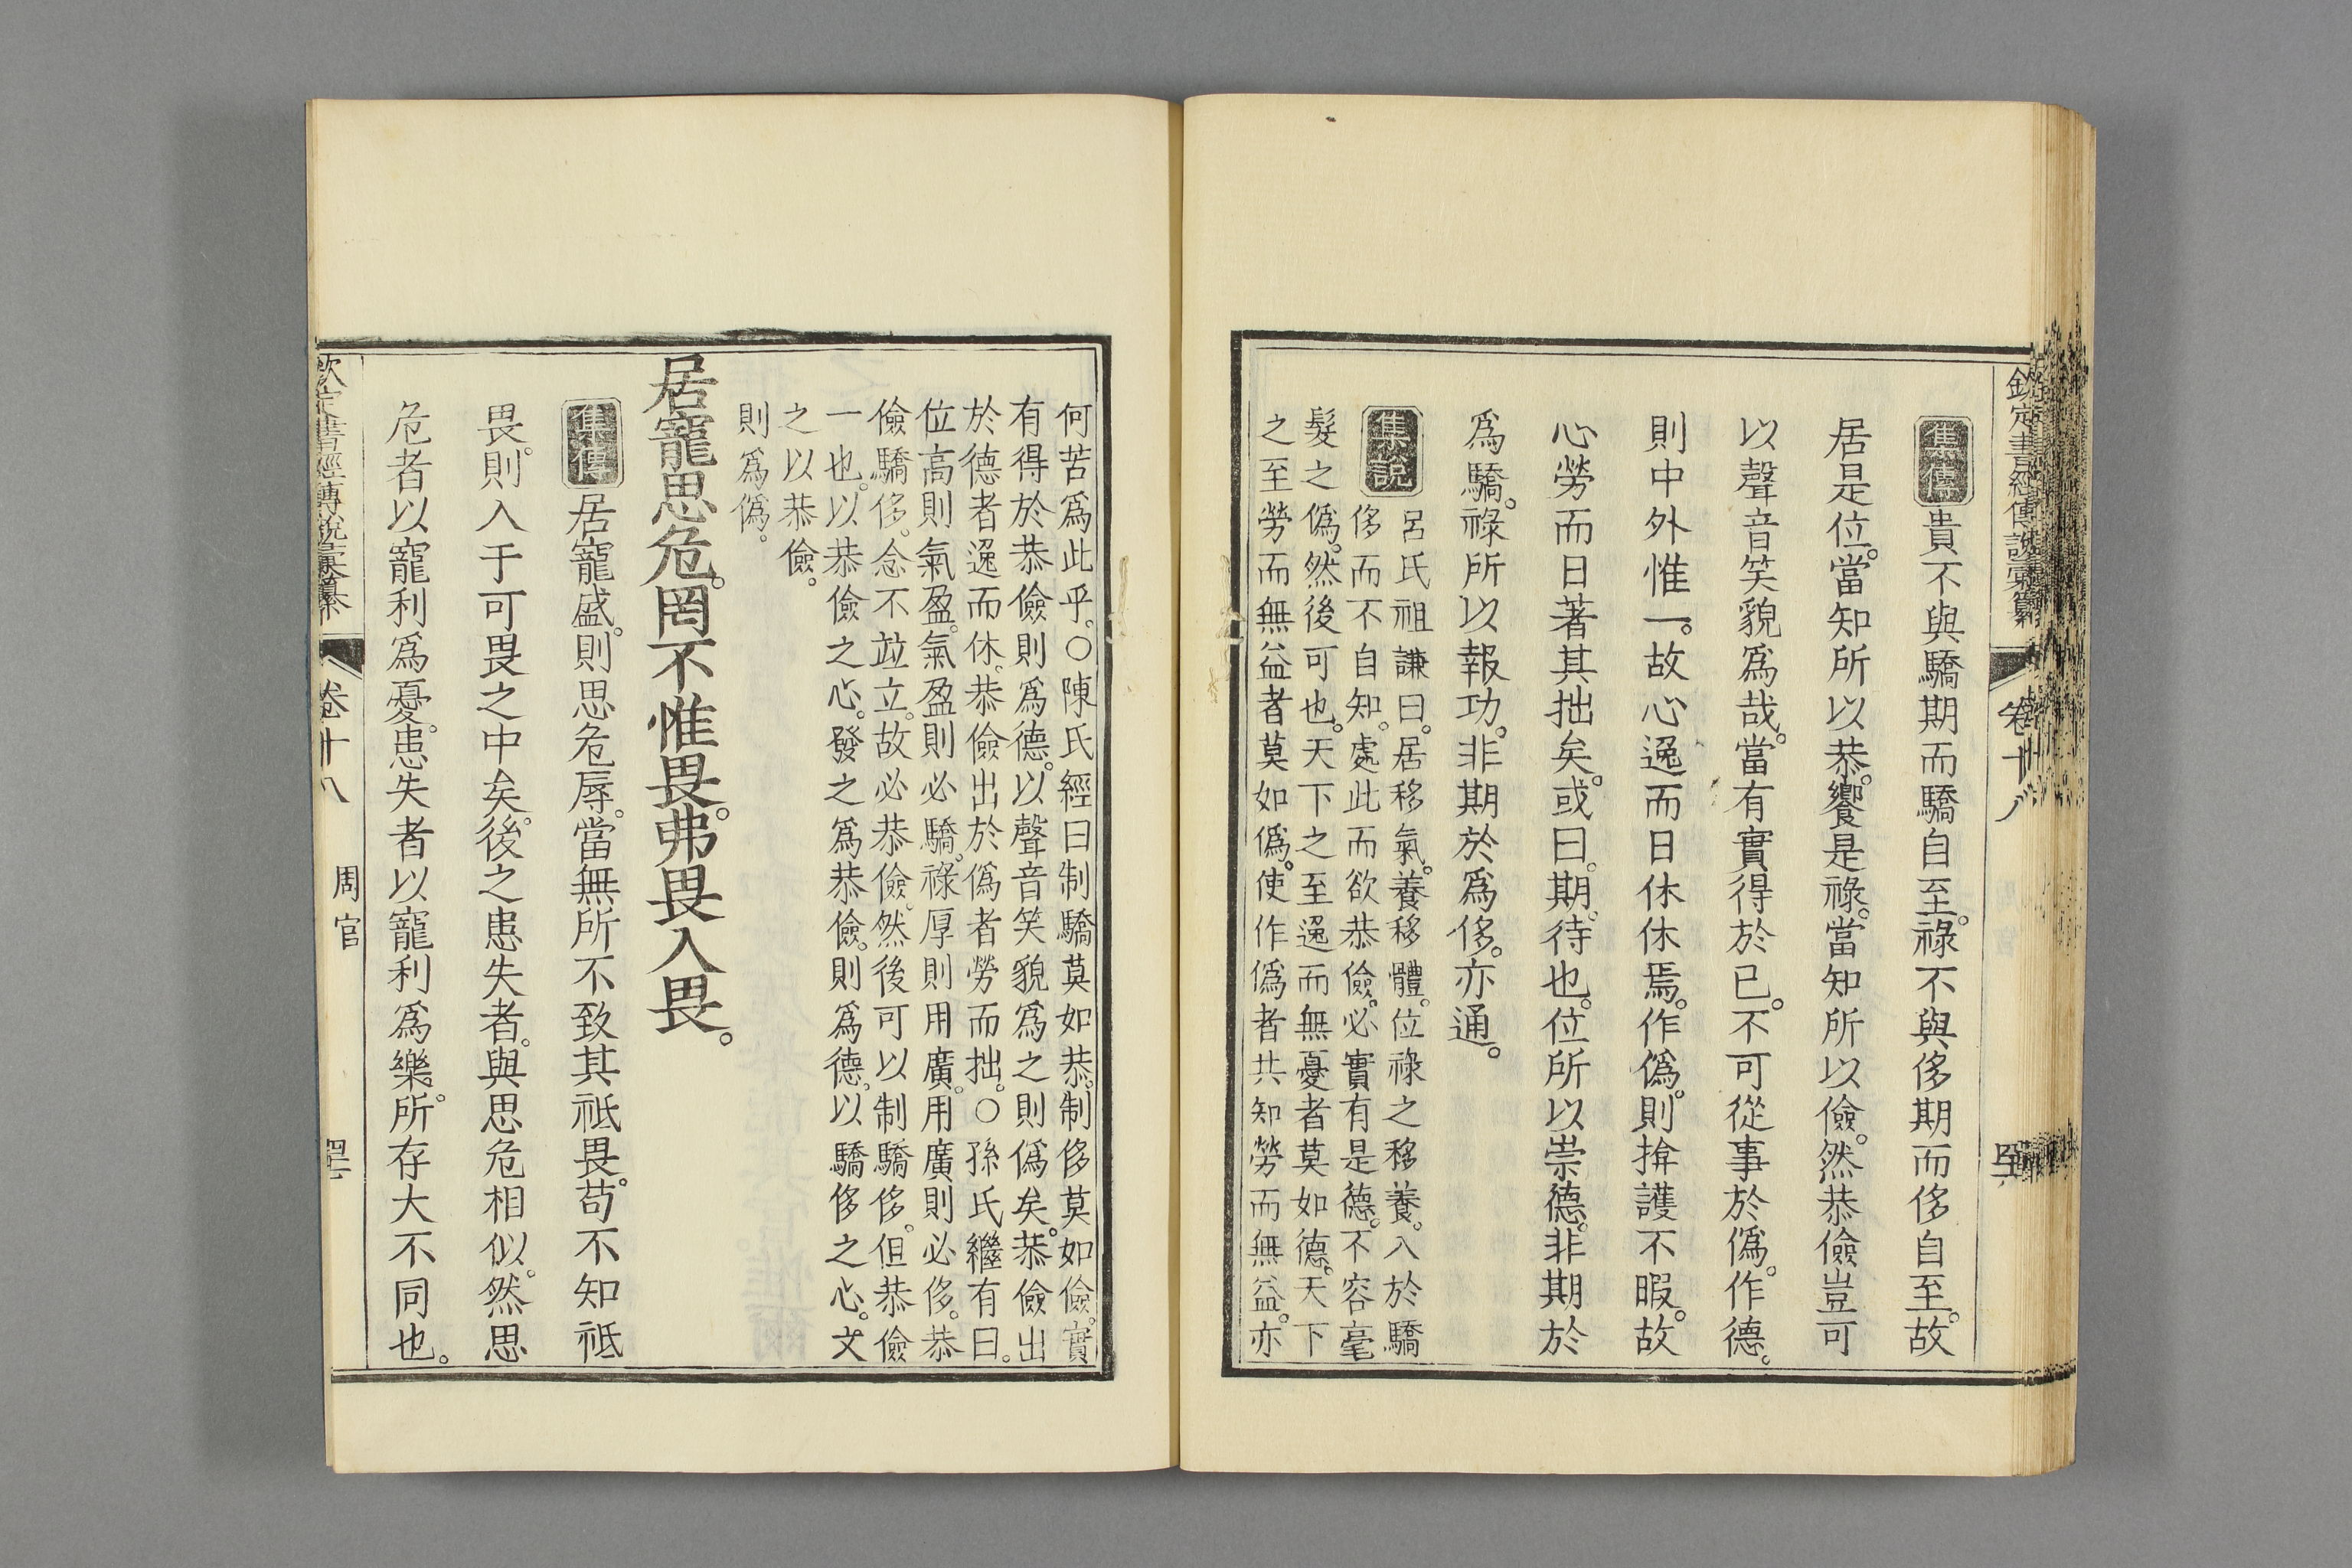 欽定書經傳說彙纂 卷十八
集傳 貴不與驕期而驕自至。祿不與侈期而侈自至。故
居是位。當知所以恭。饗是祿。當知所以儉。然恭儉豈可
以聲音笑貌爲哉。當有實得於已。不可從事於僞。作德。
則中外惟一。故心逸而日休休焉。作僞。則揜護不暇。故
心勞而日著其拙矣。或曰。期。待也。位所以崇德。非期於
爲驕。祿所以報功。非期於爲侈。亦通。
集說 呂氏祖謙曰。居移氣。養移體。位祿之移養。入於驕
侈而不自知。處此而欲恭儉。必實有是德。不容毫
髮之僞。然後可也。天下之至逸而無憂者莫如德。天下
之至勞而無益者莫如僞。使作僞者共知勞而無益。亦
何苦爲此乎。○陳氏經曰制驕莫如恭。制侈莫如儉。實
有得於恭儉則爲德。以聲音笑貌爲之則僞矣。恭儉出
於德者逸而休。恭儉出於僞者勞而拙。○孫氏繼有曰。
位高則氣盈。氣盈則必驕。祿厚則用廣。用廣則必侈。恭
儉驕侈。念不竝立。故必恭儉。然後可以制驕侈。但恭儉
一也。以恭儉之心。發之爲恭儉。則爲德。以驕侈之心。文
之以恭儉。
則爲僞。
居寵思危。罔不惟畏。弗畏入畏。
集傳 居寵盛。則思危辱。當無所不致其祗畏。苟不知祗
畏。則入于可畏之中矣。後之患失者。與思危相似。然思
危者以寵利爲憂。患失者以寵利爲樂。所存大不同也。
欽定書經傳說彙纂 卷十八 周官